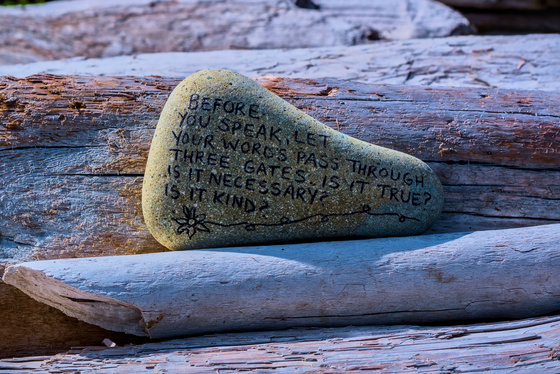 BEFORE
YOU SPEAK, LET
YOUR WORDS PASS THROUGH
THREE GATES. IS IT TRUE?
IS IT NECESSARY?
IS IT KIND?